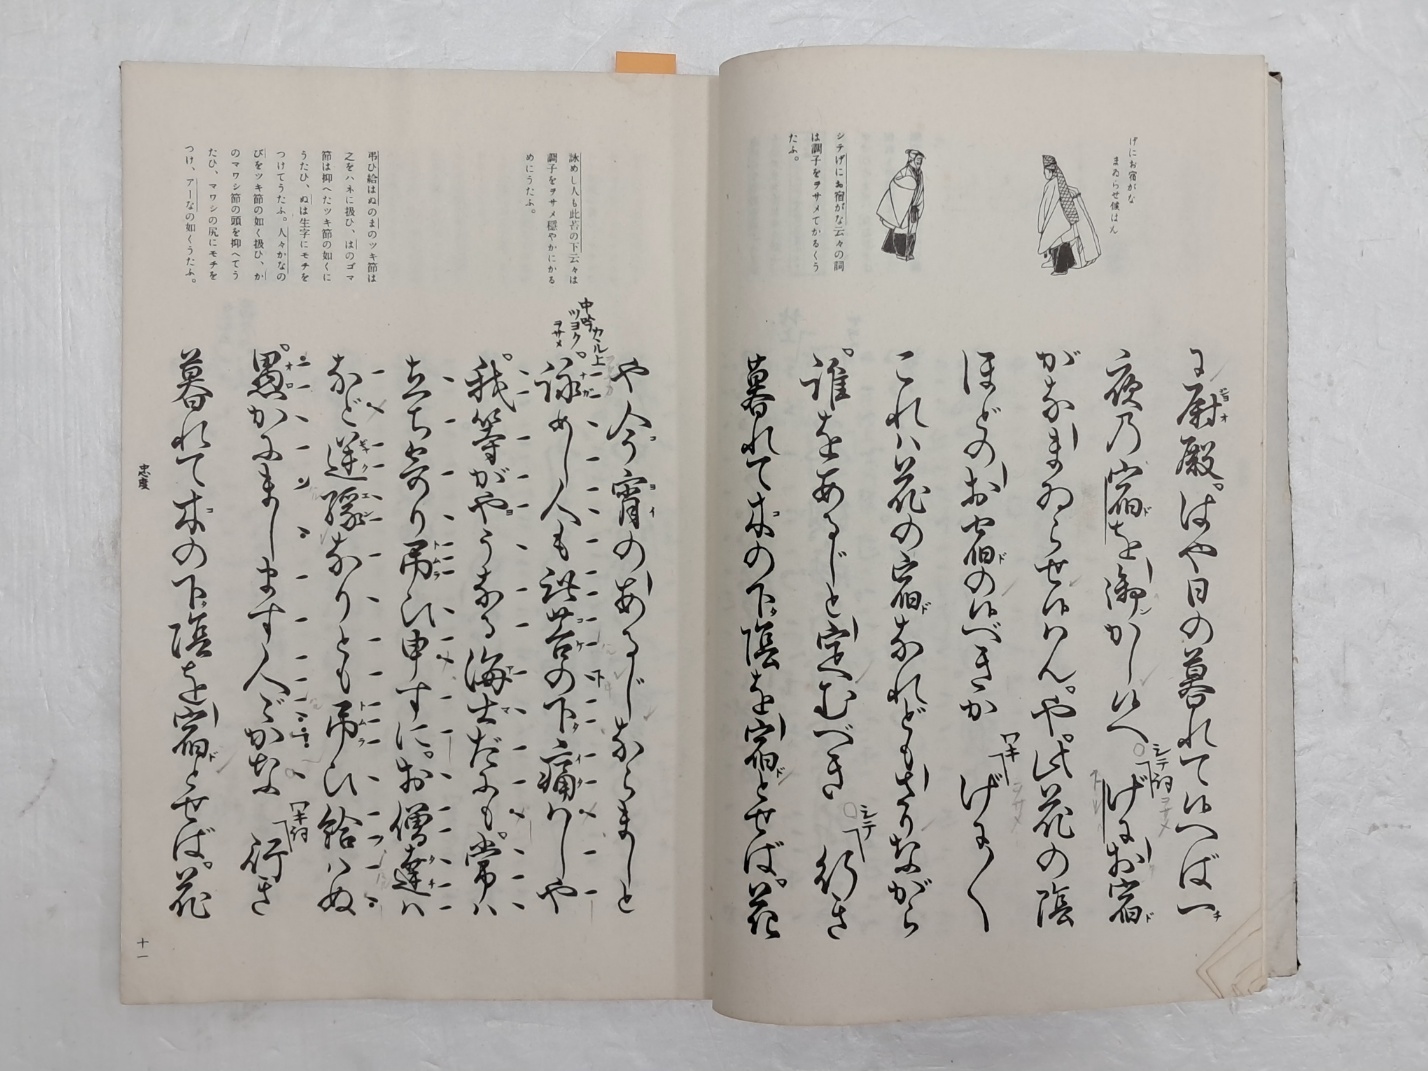 げにお宿がな
まゐらせ候はん
シテげにお宿がな云々の詞
は調子をヲサメてかるくう
たふ。
に尉殿。はや日の暮れて候へば一
夜の宿を御かし候へ
シテ詞
げにお宿
がなまゐらせ候はん。や。此花の陰
ほどのお宿の候べきか
ワキ
げに〱
これハ花の宿なれどもさりながら
誰をあるじと定むべき
シテ
行き
暮れて木の下陰を宿とせば。花
詠めし人も此苔の下云々は
調子をヲサメ穏やかにかる
めにうたふ。
弔ひ給はぬのまのツキ節は
之をハネに扱ひ、はのゴマ
節は抑へたツキ節の如くに
うたひ、ぬは生字にモチを
つけてうたふ。人々かなの
びをツキ節の如く扱ひ、か
のマワシ節の頭を抑へてう
たひ、マワシの尻にモチを
つけ、アーなの如くうたふ。
や今宵のあるじならましと
カル上
中吟
ツヨク
ヲサメ
詠めし人も此苔の下痛ハしや
我等がやうなる海士だにも。常ハ
立ち寄り弔ひ申すに。お僧達ハ
など逆縁なりとも弔ひ給ハぬ
愚かにまします人々かな
ワキ詞
行き
暮れて木の下陰を宿とせば。花
忠度
十一